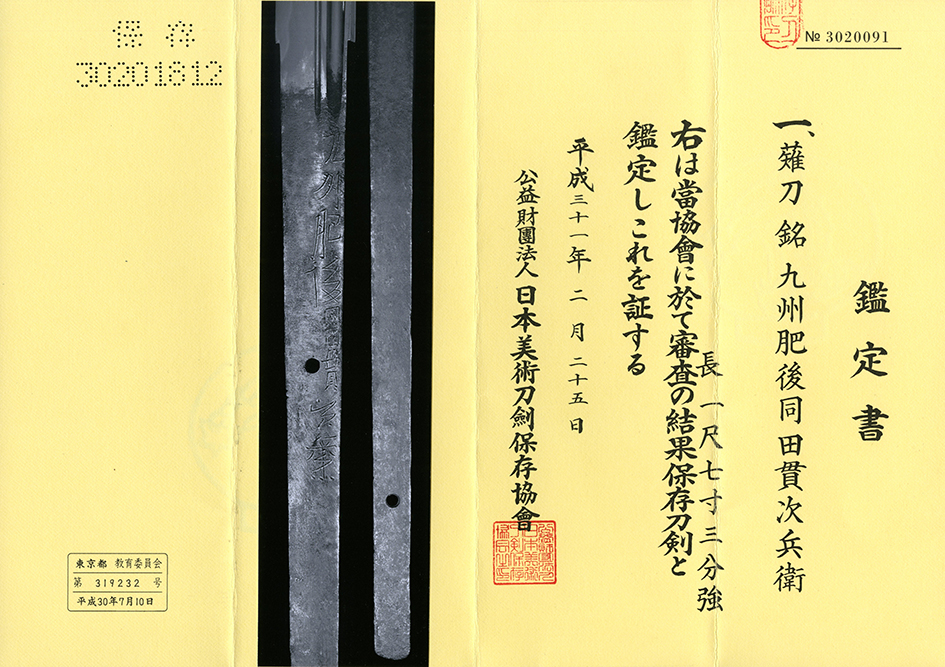 № 3020091
鑑定書
一、薙刀 銘 九州肥後同田貫次兵衛
長 一尺七寸三分強
右は當協會に於て審査の結果保存刀剣と
鑑定しこれを証する
平成三十一年 二月 二十五日
公益財團法人 日本美術刀劍保存協會
保存
30201812
東京都 教育委員会
第 319232 号
平成30年7月10日
九州肥後同田貫次兵衛